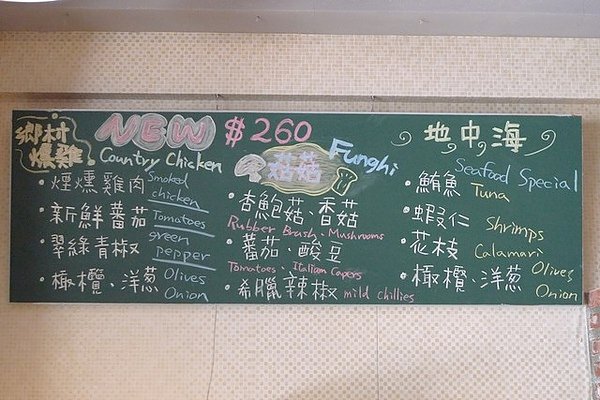 鄉村
燻雞
NEW $260
Country Chicken
・煙燻雞肉 Smoked chicken
・新鮮蕃茄 Tomatoes
・翠綠青椒 green pepper
・橄欖、洋蔥 Olives Onion
菇菇 Funghi
・杏鮑菇、香菇
Rubber Brash、Mushrooms
・蕃茄、酸豆
Tomatoes、Italian Capers
・希臘辣椒 mild chillies
地中海
Seafood Special
・鮪魚 Tuna
・蝦仁 Shrimps
・花枝 Calamari
・橄欖、洋蔥 Olives Onion